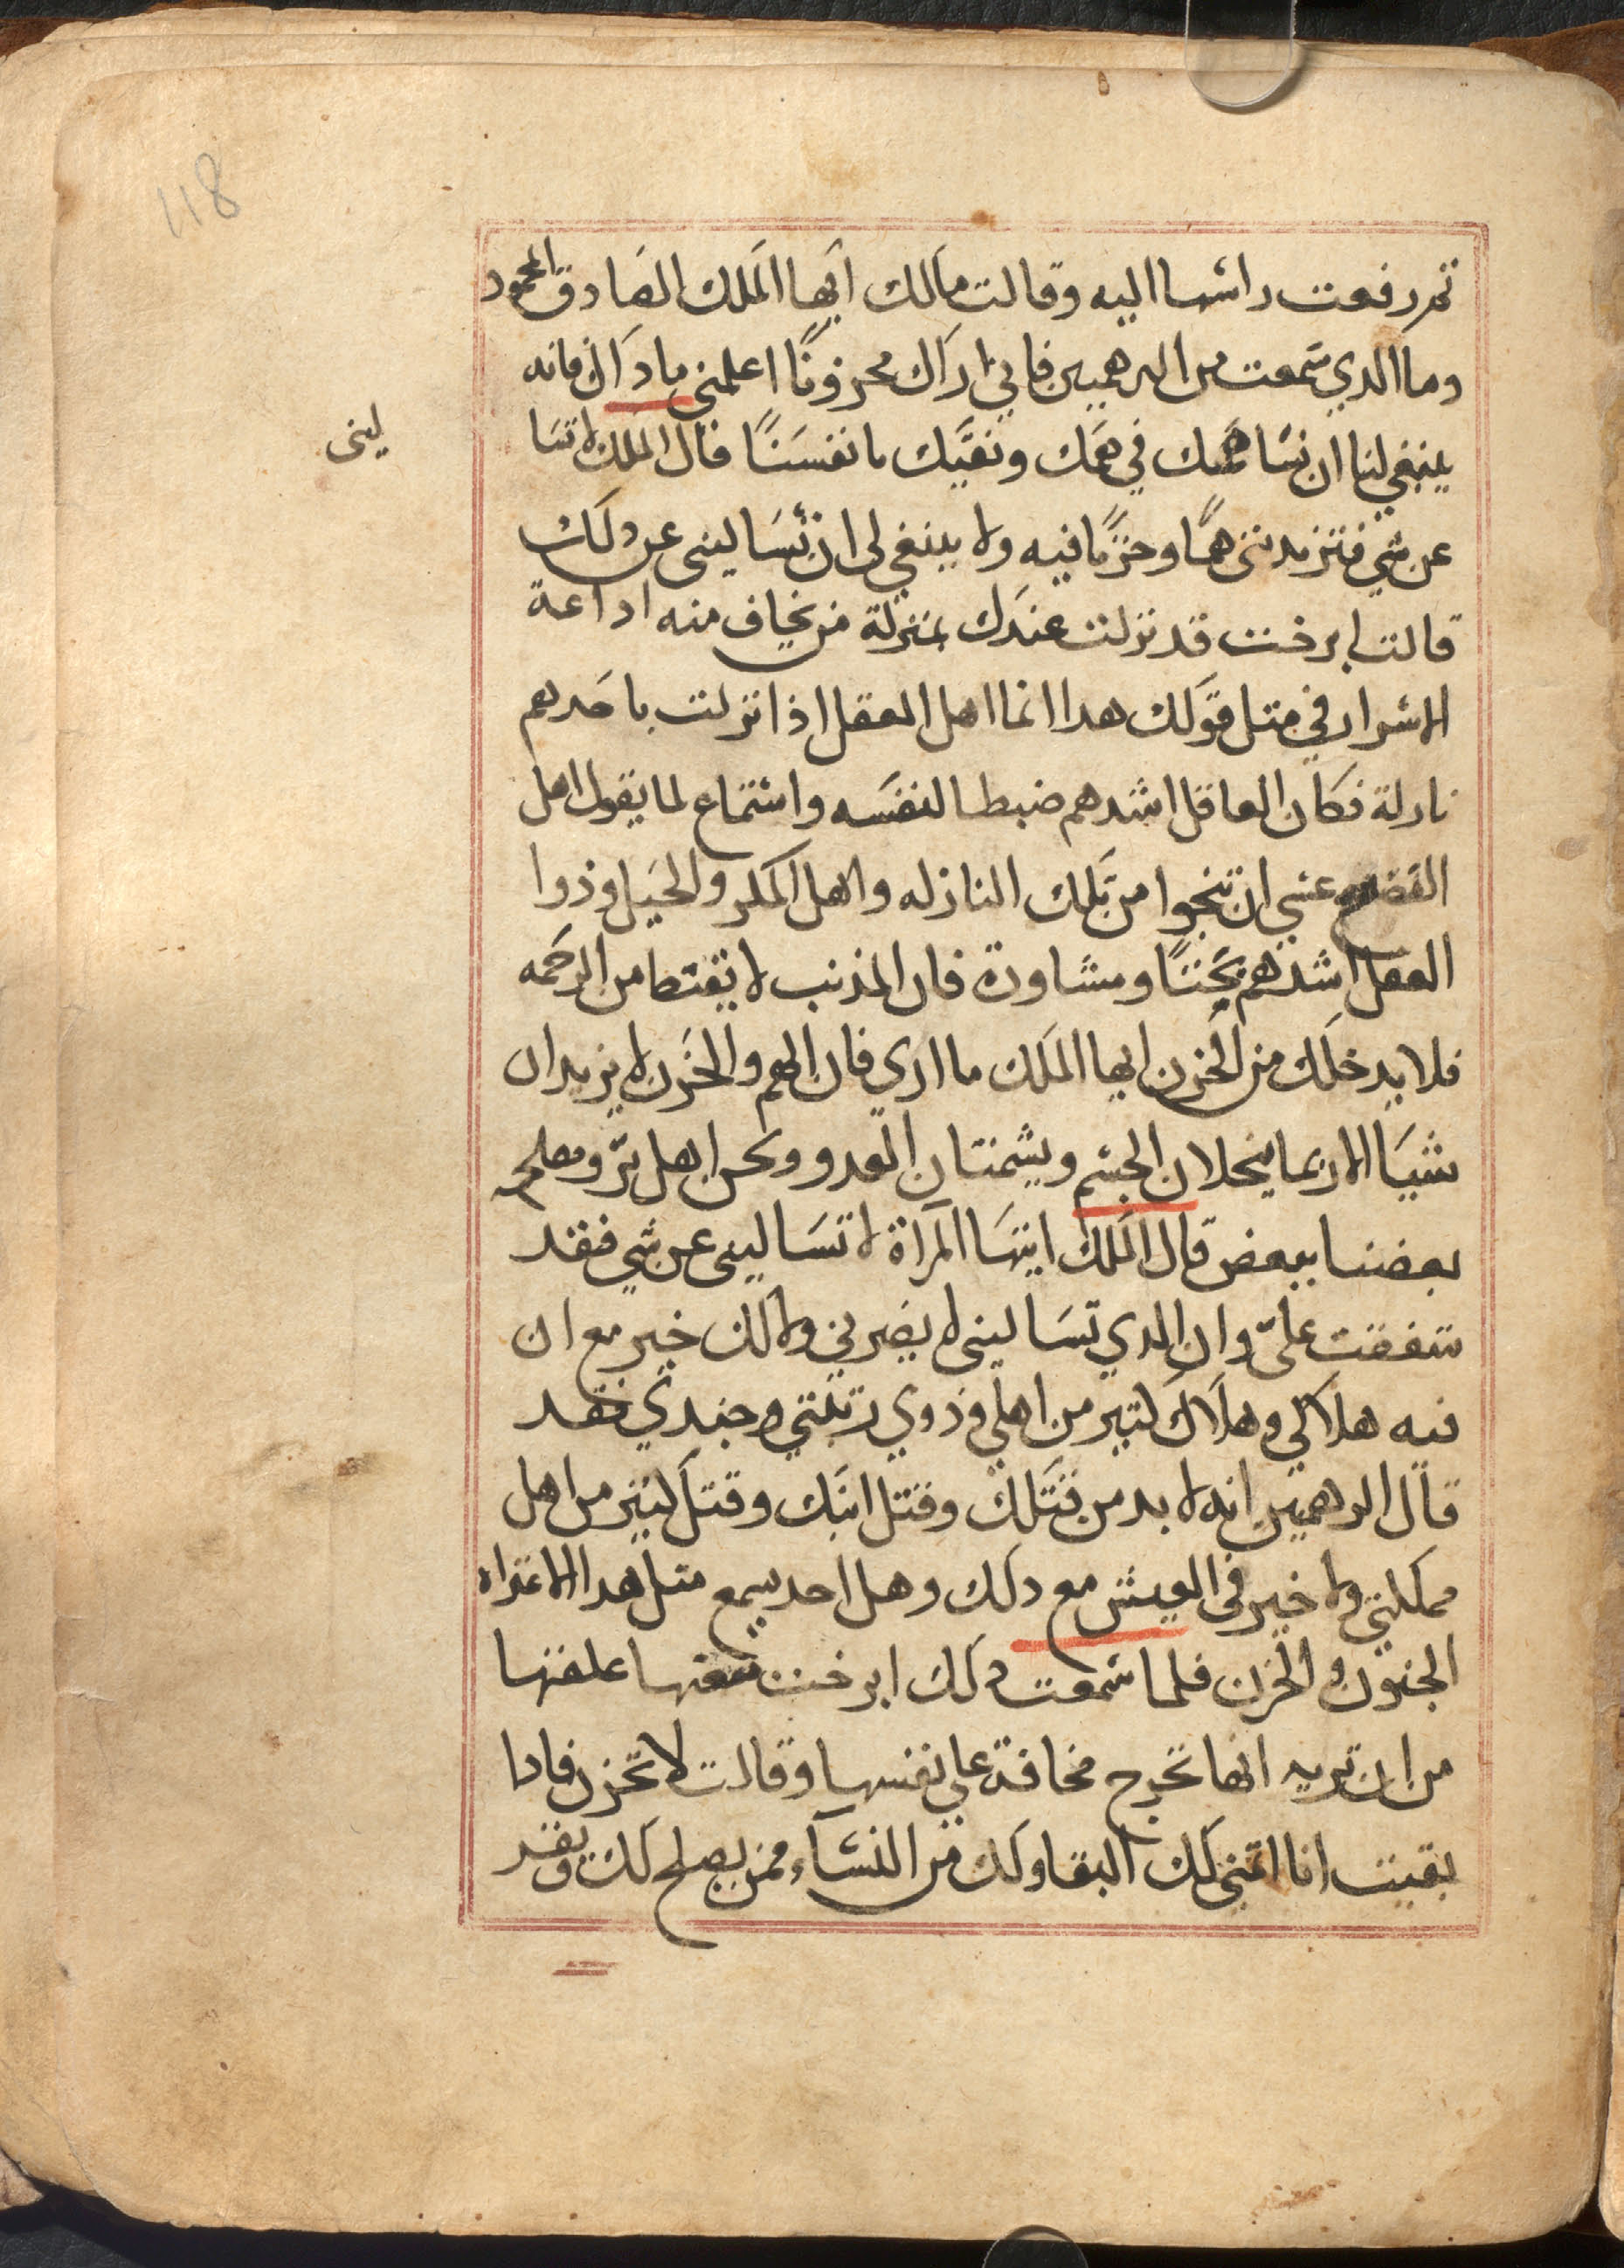 118
ثم رفعت راسها اليه وقالت مالك ايها الملك الصادق المحمود
وما الدي سمعت من البرهميين فاني اراك محزونًا اعلمني مادا كان فانه
ينبغي لنا ان نساهمك في همك ونقيك بانفسنا قال الملك لا تسا
ليني
عن شي فتزيديني همًا وحزنًا فيه ولا ينبغي لي ان تساليني عن دلك
قالت ايرخت قد نزلت عندك بمنزلة من يخاف منه اداعة
الاسرار في متل قولك هدا انما اهل العقل اذا نزلت باحدهم
نازلة فكان العاقل اشدهم ضبطا لنفسه واستماع لما يقول اهل
عسي ان تنجوا من تلك النازله واهل المكر والحيل وذوا
العقل اشدهم بحتًا ومشاورة فان المذنب لا يقنط من الرحمه
فلا يدخلك من الحزن ايها الملك ما اري فان الهم والحزن لا يزيدان
شيا الا ربما ينحلان الجسم ويشمتان العدو ونحن اهل بر ومصلح
بعضنا ببعض قال الملك ايتها المراة لا تساليني عن شي فقد
شققت علي وان الدي تساليني لا يضرني ولا لك خير مع ان
فيه هلاكي وهلاك كتير من اهلي وذوي رتبتي وجندي فقد
قال البرهميين انه لا بد من قتلك وقتل ابنك وقتل كتير من اهل
مملكتي ولا خير في العيش مع دلك وهل احد يسمع متل هدا الا اعتراه
الجنون والحزن فلما سمعت دلك ايرخت عقلها
من ان تريه انها تخرج مخافة علي نفسها وقالت لا تحزن فادا
بقيت انا اتمني لك البقا ولك من النسآء ممن يصلح لك وقد